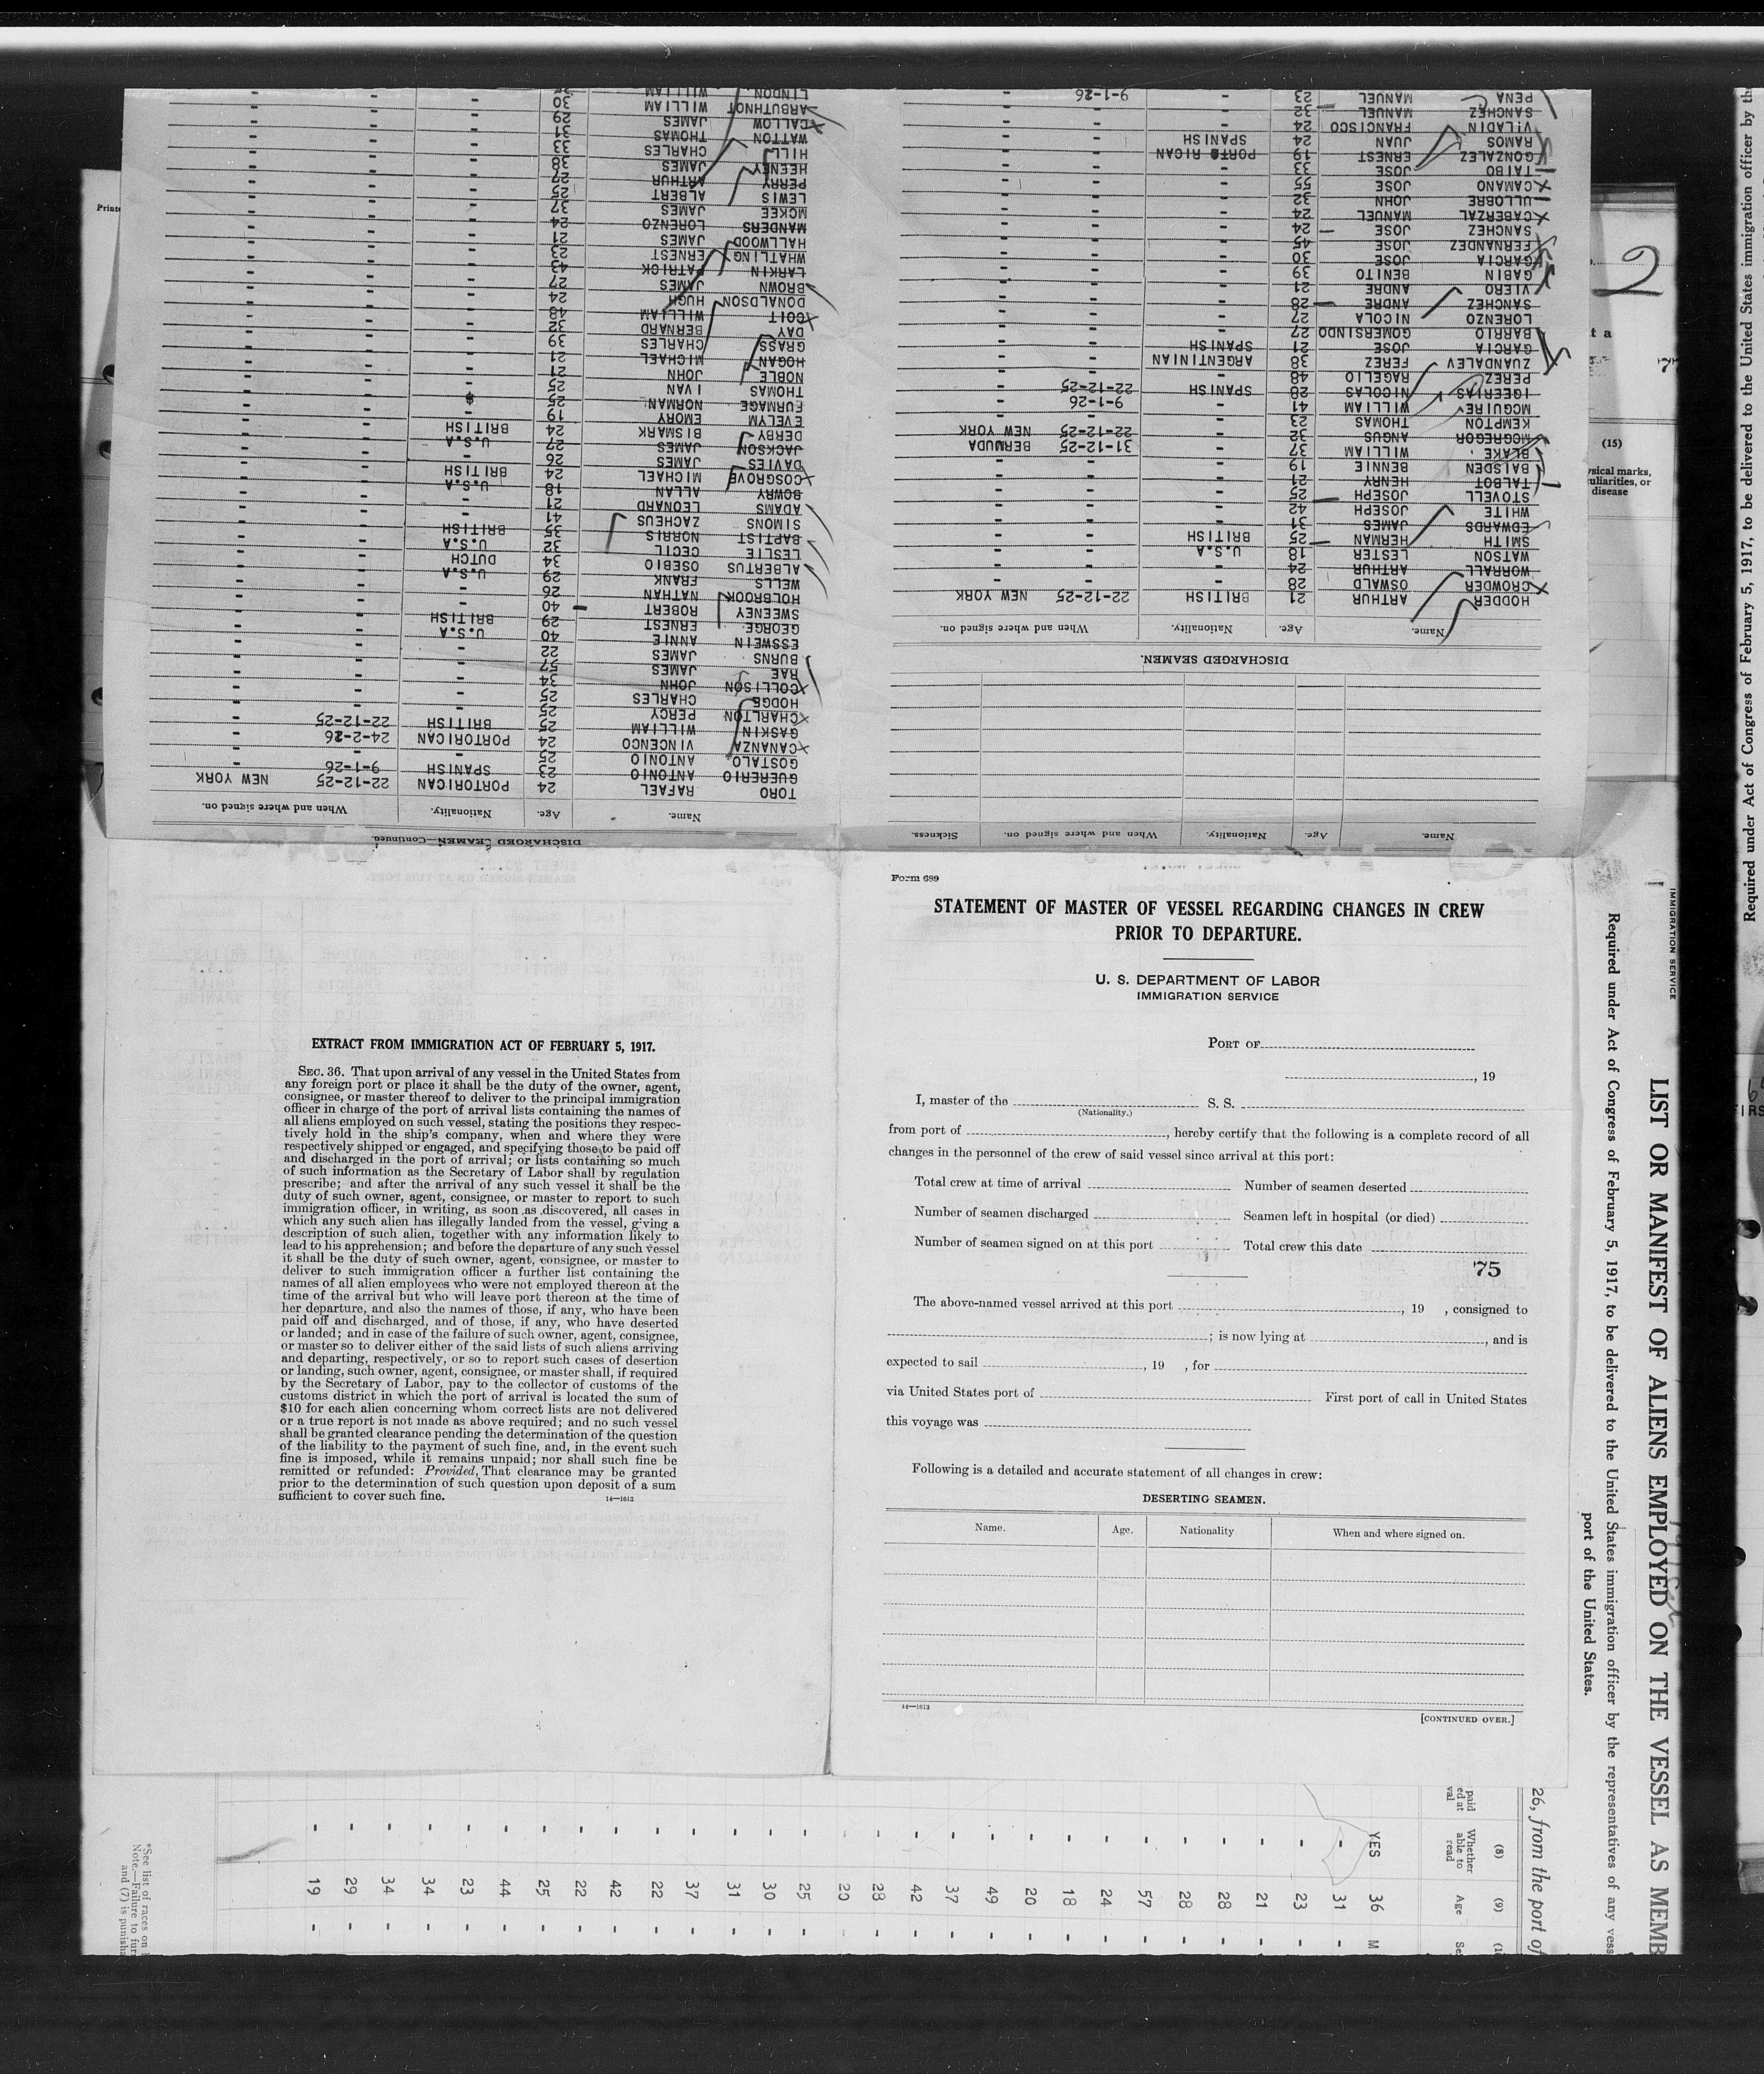 Form 689
STATEMENT OF MASTER OF VESSEL REGARDING CHANGES IN CREW
PRIOR TO DEPARTURE.
U. S. DEPARTMENT OF LABOR
IMMIGRATION SERVICE
PORT OF
, 19
I, master of the S. S.
(Nationality.)
from port of , hereby certify that the following is a complete record of all
changes in the personnel of the crew of said vessel since arrival at this port:
Total crew at time of arrival Number of seamen deserted
Number of seamen discharged Seamen left in hospital (or died)
Number of seamen signed on at this port Total crew this date
75
The above-named vessel arrived at this port , 19 , consigned to
; is now lying at , and is
expected to sail , 19 , for
via United States port of First port of call in United States
this voyage was
Following is a detailed and accurate statement of all changes in crew:
DESERTING SEAMEN.
Name. Age. Nationality When and where signed on.
14—1613
[CONTINUED OVER.]
EXTRACT FROM IMMIGRATION ACT OF FEBRUARY 5, 1917.
SEC. 36. That upon arrival of any vessel in the United States from
any foreign port or place it shall be the duty of the owner, agent,
consignee, or master thereof to deliver to the principal immigration
officer in charge of the port of arrival lists containing the names of
all aliens employed on such vessel, stating the positions they respec-
tively hold in the ship's company, when and where they were
respectively shipped or engaged, and specifying those to be paid off
and discharged in the port of arrival; or lists containing so much
of such information as the Secretary of Labor shall by regulation
prescribe; and after the arrival of any such vessel it shall be the
duty of such owner, agent, consignee, or master to report to such
immigration officer, in writing, as soon as discovered, all cases in
which any such alien has illegally landed from the vessel, giving a
description of such alien, together with any information likely to
lead to his apprehension; and before the departure of any such vessel
it shall be the duty of such owner, agent, consignee, or master to
deliver to such immigration officer a further list containing the
names of all alien employees who were not employed thereon at the
time of the arrival but who will leave port thereon at the time of
her departure, and also the names of those, if any, who have been
paid off and discharged, and of those, if any, who have deserted
or landed; and in case of the failure of such owner, agent, consignee,
or master so to deliver either of the said lists of such aliens arriving
and departing, respectively, or so to report such cases of desertion
or landing, such owner, agent, consignee, or master shall, if required
by the Secretary of Labor, pay to the collector of customs of the
customs district in which the port of arrival is located the sum of
$10 for each alien concerning whom correct lists are not delivered
or a true report is not made as above required; and no such vessel
shall be granted clearance pending the determination of the question
of the liability to the payment of such fine, and, in the event such
fine is imposed, while it remains unpaid; nor shall such fine be
remitted or refunded: Provided, That clearance may be granted
prior to the determination of such question upon deposit of a sum
sufficient to cover such fine.
14—1613
Name. Age. Nationality. When and where signed on. Sickness.
DISCHARGED SEAMEN.
Name. Age. Nationality. When and where signed on.
HODDER ARTHUR 21 BRITISH 22-12-25 NEW YORK
CROWDER OSWALD 28 - - -
WORRALL ARTHUR 24 - - -
WATSON LESTER 18 U.S.A - -
SMITH HERMAN 25 BRITISH - -
EDWARDS JAMES 31 - - -
WHITE JOSEPH 42 - - -
STOVELL JOSEPH 25 - - -
TALBOT HENRY 21 - - -
BAISDEN BENNIE 19 - - -
BLAKE WILLIAM 37 - 31-12-25 BERMUDA
MCGREGOR ANGUS 32 - 22-12-25 NEW YORK
KEMPTON THOMAS 23 - - -
MCGUIRE WILLIAM 41 - 9-1-26 -
IGERIAS NICOLAS 28 SPANISH 22-12-25 -
PEREZ RAGELIO 48 - - -
ZUANDALEV FEREZ 38 ARGENTINIAN - -
GARCIA JOSE 21 SPANISH - -
BARRIO GOMERSINDO 27 - - -
LORENZO NICOLA 27 - - -
SANCHEZ ANDRE 28 - - -
VIERO ANDRE 21 - - -
GABIN BENITO 39 - - -
GARCIA JOSE 30 - - -
FERNANDEZ JOSE 45 - - -
SANCHEZ JOSE 24 - - -
CABERZAL MANUEL 24 - - -
ULLOBRE JOHN 32 - - -
CAMANO JOSE 55 - - -
TAIBO JOSE 33 - - -
GONZALEZ ERNEST 19 PORTO RICAN - -
RAMOS JUAN 24 SPANISH - -
VILADIN FRANCISCO 24 - - -
SANCHEZ MANUEL 32 - - -
PENA MANUEL 23 - 9-1-26 -
DISCHARGED SEAMEN—Continued.
Name. Age. Nationality. When and where signed on.
TORO RAFAEL 24 PORTORICAN 22-12-25 NEW YORK
GUERERIO ANTONIO 23 SPANISH 9-1-26 -
GOSTALO ANTONIO 25 - - -
CANANZA VINCENCO 24 PORTORICAN 24-2-26 -
GASKIN WILLIAM 25 BRITISH 22-12-25 -
CHARLTON PERCY 25 - - -
HODGE CHARLES 25 - - -
COLLISON JOHN 34 - - -
RAE JAMES 57 - - -
BURNS JAMES 22 - - -
ESSWEIN ANNIE 40 U.S.A - -
GEORGE ERNEST 29 BRITISH - -
SWEENEY ROBERT 40 - - -
HOLBROOK NATHAN 26 - - -
WELLS FRANK 29 U.S.A - -
ALBERTUS OSEBIO 34 DUTCH - -
LESLIE CECIL 32 U.S.A - -
BAPTIST NORRIS 35 BRITISH - -
SIMONS ZACHEUS 41 - - -
ADAMS LEONARD 21 - - -
BOWRY ALLAN 18 U.S.A - -
COSGROVE MICHAEL 24 BRITISH - -
DAVIES JAMES 26 - - -
JACKSON JAMES 27 U.S.A - -
DERBY BISMARK 24 BRITISH - -
EVELYM EMORY 19 - - -
FURMAGE NORMAN 25 - - -
THOMAS IVAN 25 - - -
NOBLE JOHN 21 - - -
HOGAN MICHAEL 21 - - -
GRASS CHARLES 39 - - -
DAY BERNARD 32 - - -
COIT WILLIAM 48 - - -
DONALDSON HUGH 24 - - -
BROWN JAMES 27 - - -
LARKIN PATRICK 43 - - -
WHATLING ERNEST 23 - - -
HALLWOOD JAMES 21 - - -
MANDERS LORENZO 24 - - -
MCKEE JAMES 37 - - -
LEWIS ALBERT 25 - - -
PERRY ARTHUR 27 - - -
HEENEY JAMES 38 - - -
HILL CHARLES 33 - - -
WATTON THOMAS 31 - - -
CALLOW JAMES 29 - - -
ARBUTHNOT WILLIAM 30 - - -
LINDON WILLIAM
IMMIGRATION SERVICE
LIST OR MANIFEST OF ALIENS EMPLOYED ON THE VESSEL AS MEMB
Required under Act of Congress of February 5, 1917, to be delivered to the United States immigration officer by the representatives of any vess
port of the United States.
26, from the port of
paid
ed at
val
(8)
Whether
able to
read
(9)
Age
YES 36 M
- 31 -
- 23 -
- 21 -
- 28 -
- 28 -
- 57 -
- 24 -
- 18 -
- 20 -
- 49 -
- 37 -
- 42 -
- 28 -
- 20 -
- 25 -
- 30 -
- 31 -
- 37 -
- 22 -
- 42 -
- 22 -
- 25 -
- 44 -
- 23 -
- 34 -
- 34 -
- 29 -
- 19 -
*See list of races on
Note.—Failure to fur
and (7) is punisha
2
(15)
ysical marks,
uliarities, or
disease
Required under Act of Congress of February 5, 1917, to be delivered to the United States immigration officer by the